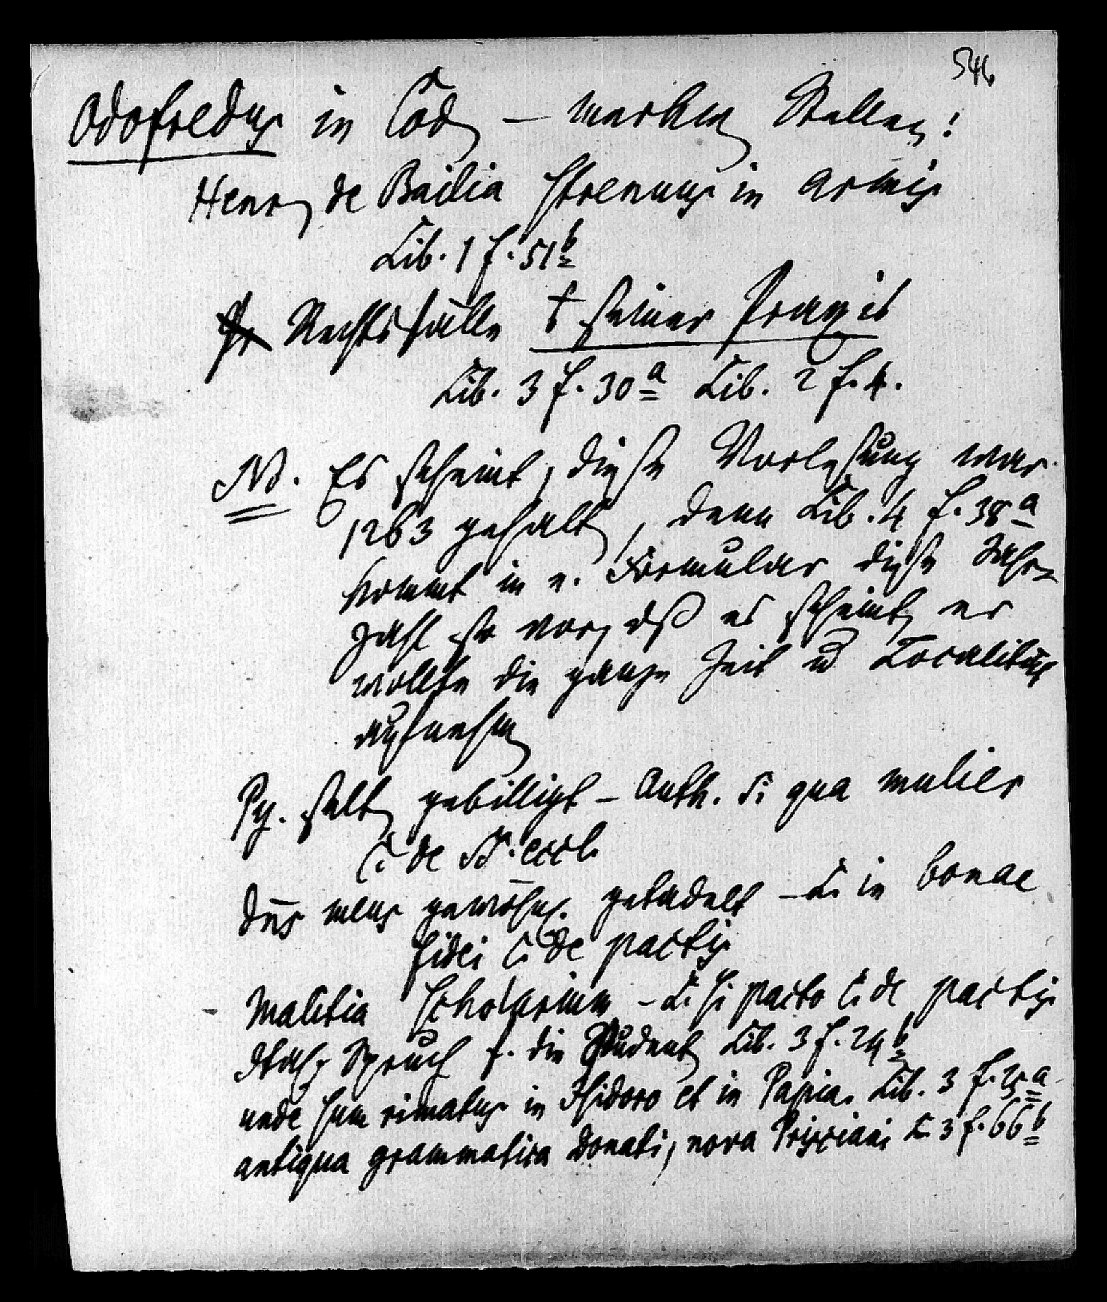 546
Odofredus in Cod – merkw Stellen!
Henr de Bailia strenuus in armis
Lib. 1 f. 51b
Rechtsfälle seiner Praxis
Lib. 3 f. 30a Lib. 2 f. 4.
NB. Es scheint, diese Vorlesung war
1263 gehalt, denn Lib. 4 f. 38a
kommt in e. Formular diese Jahr-
zahl vor, dß es scheint er
wollte die ganze Zeit u Localität
aufnehm
Py. gebilligt – Auth. Si qua mulier
C. de SS. eccl.
Dns meus getadelt – L. in bonae
fidei C. de pactis
Malitia scholarium – L. si pacto C. de pactis
Spruch f. die Student Lib. 3 f. 29b
unde sum rimatus in Isidoro et in Papia. Lib. 3 f. 35a
antiqua grammatica Donati, nova Prisciani L. 3 f. 66b